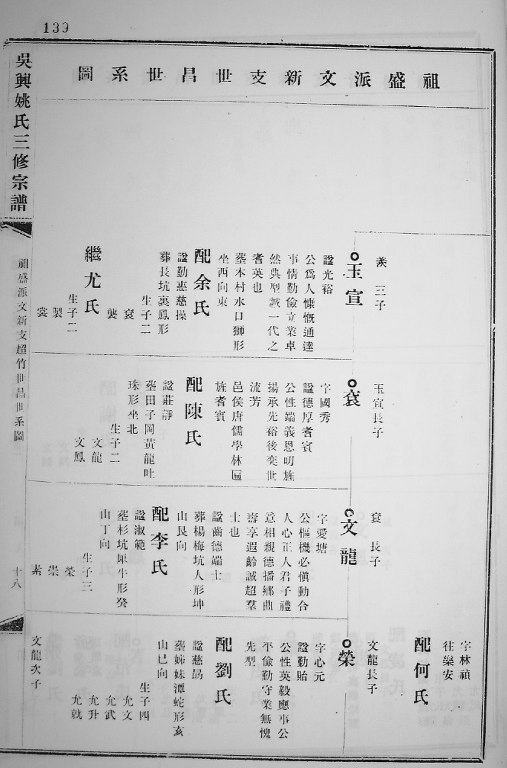 139
祖盛派文新支世昌世系圖
吳興姚氏三修宗譜
祖盛派文新支超竹世昌世系圖
十八
三子
玉宣
諡光裕
公爲人慷慨通達
事情勤儉立業卓
然典型誠一代之
耆英也
墓本村水口獅形
坐西向東
配余氏
諡勤惠慈操
葬長坑裏鳳形
生子二
袞
襲
繼尤氏
生子二
製
裳
玉宣長子
袞
字國秀
諡德厚耆賓
公性端義恩叨族
揚承先裕後奕世
流芳
邑侯唐儒學林匾
旌耆賓
配陳氏
諡莊靜
墓田子岡黃龍吐
珠形坐北
生子二
文龍
文鳳
袞長子
文龍
字愛塘
公樞機必慎動合
人心正人君子禮
意相親德播鄉曲
壽享遐齡誠超羣
士也
諡萬德端士
葬楊梅坑人形坤
山艮向
配李氏
諡淑範
墓杉坑犀牛形癸
山丁向
生子三
榮
崇
素
字林禎
往樂安
配何氏
文龍長子
榮
字心元
諡勤貽
公性英毅應事公
平儉勤守業無愧
先型
配劉氏
諡慈昜
墓姊妹潭蛇形亥
山巳向
生子四
允文
允武
允升
允就
文龍次子